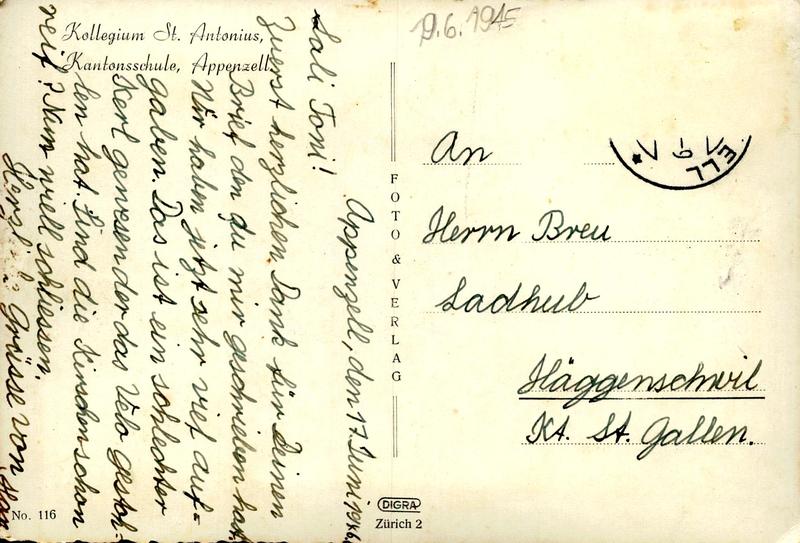 Kollegium St. Antonius,
Kantonsschule, Appenzell
Appenzell, den 17. Juni
Sali Toni!
Zuerst herzlichen Dank für Deinen
Brief den du mir geschrieben hat.
Wir haben jetzt sehr viel auf-
gaben. Das ist ein schlechter
Kerl gewesen der das Velo gestoh-
len hat. Sind die Kirschen schon
reif? Nun will schliessen.
Grüsse von
No. 116
FOTO & VERLAG
DIGRA
Zürich 2
19.6.1945
ELL
An
Herrn Breu
Ladhub
Häggenschwil
Kt. St. Gallen.